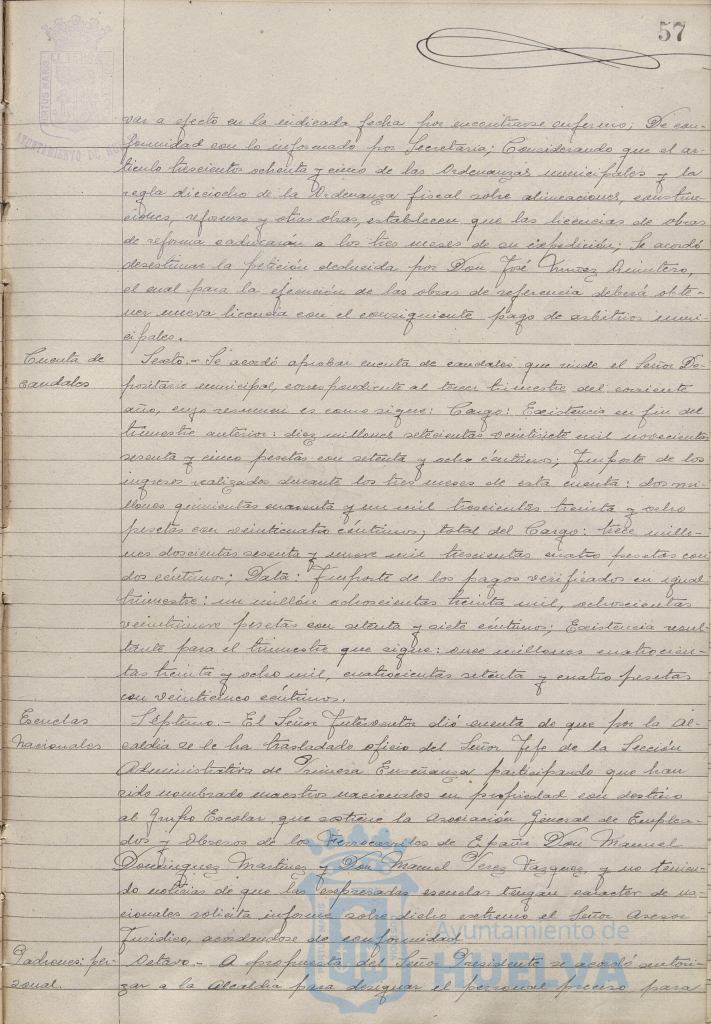 57
PORTUS MARIS
AYUNTAMIENTO DE
var a efecto en la indicada fecha por encontrarse enfermo; De con-
formidad con lo informado por Secretaria; Considerando que el ar-
tículo trescientos ochenta y cinco de las Ordenanzas municipales y la
regla dieciocho de la Ordenanza fiscal sobre alineaciones, construc-
ciones, reformas y otras obras, establecen que las licencias de obras
de reforma caducarán a los tres meses de su expedición; Se acordó
desestimar la petición deducida por Don José Nuñez Quintero,
el cual para la ejecución de las obras de referencia deberá obte-
ner nueva licencia con el consiguiente pago de arbitrios muni-
cipales.
Cuenta de
caudales
Sexto.- Se acordó aprobar cuenta de caudales que rinde el Señor De-
positario municipal, correspondiente al tercer trimestre del corriente
año, cuyo resumen es como sigue: Cargo: Existencia en fin del
trimestre anterior: diez millones setecientas veintisiete mil novecientas
sesenta y cinco pesetas con setenta y ocho céntimos; Importe de los
ingresos realizados durante los tres meses de esta cuenta: dos mi-
llones quinientas cuarenta y un mil trescientas treinta y ocho
pesetas con veinticuatro céntimos; total del Cargo: trece millo-
nes doscientas sesenta y nueve mil trescientas cuatro pesetas con
dos céntimos; Data: Importe de los pagos verificados en igual
trimestre: un millón ochocientas treinta mil, ochocientas
veintinueve pesetas con setenta y siete céntimos; Existencia resul-
tante para el trimestre que sigue: once millones cuatrocien-
tas treinta y ocho mil, cuatrocientas setenta y cuatro pesetas
con veinticinco céntimos.
Escuelas
Nacionales
Séptimo.- El Señor Interventor dió cuenta de que por la Al-
caldia se le ha trasladado oficio del Señor Jefe de la Sección
Administrativa de Primera Enseñanza participando que han
sido nombrado maestros nacionales en propiedad con destino
al Grupo Escolar que sostiene la Asociación General de Emplea-
dos y Obreros de los Ferrocarriles de España Don Manuel
Dominguez Martinez y Don Manuel Perez Vazquez y no tenien-
do noticias de que las expresadas escuelas tengan caracter de na-
cionales solicita informe sobre dicho extremo el Señor Asesor
Juridico, acordandose de conformidad
Padrones: per-
sonal.
Octavo.- A propuesta del Señor Presidente se acordó autori-
zar a la Alcaldia para designar el personal preciso para
Ayuntamiento de
HUELVA